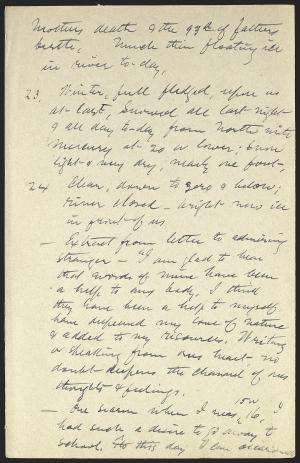 Mothers death & the 93d of fathers
birth. Much thin floating ice
in river to-day,
23. Winter, full fledged, upon us
at last, Snowed all last night
& all day to-day from North with
Mercury at 20 or lower; Snow
light & very dry, nearly one foot.
24 Clear, down to zero & below;
river closed - bright new ice
in front of us
- Extract from letter to admiring
stranger - "I am glad to hear
that words of mine have been
a help to any body, I think
they have been a help to myself
have deepened my love of nature
& added to my resources. Writing
or speaking from ones heart no
doubt deepens the channel of ones
thoughts & feelings."
- One season when I was 15 or 16,
had such a desire to go away to
school. To this day I can